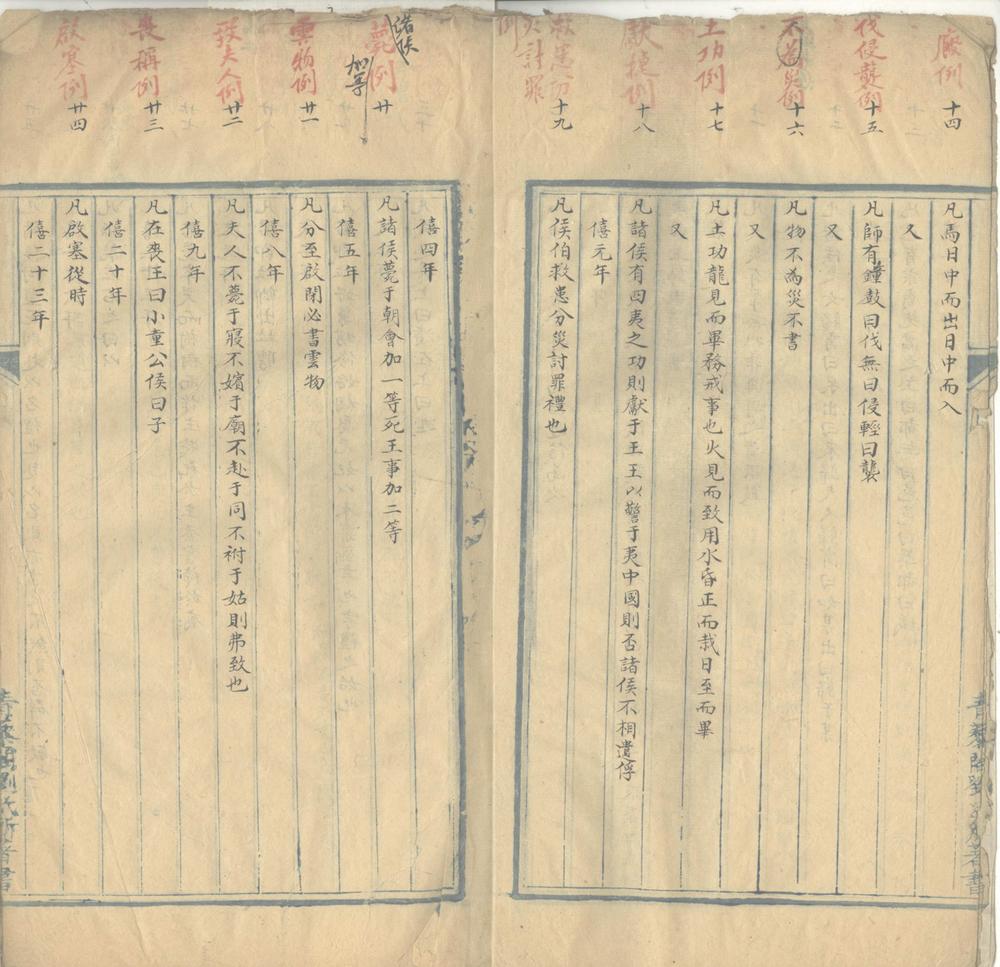 廄例 十四
伐侵襲例 十五
不為災例 十六
土功例 十七
獻捷例 十八
救患分災討罪例 十九
凡馬日中而出日中而入
又
凡師有鐘鼓曰伐無曰侵輕曰襲
又
凡物不為災不書
又
凡土功龍見而畢務戒事也火見而致用水昏正而栽日至而畢
又
凡諸侯有四夷之功則獻于王王以警于夷中國則否諸侯不相遺俘
僖元年
凡侯伯救患分災討罪禮也
青藜閣劉氏所著書
諸侯薨例 加等 廿
雲物例 廿一
致夫人例 廿二
喪稱例 廿三
啟塞例 廿四
僖四年
凡諸侯薨于朝會加一等死王事加二等
僖五年
凡分至啟閉必書雲物
僖八年
凡夫人不薨于寢不嬪于廟不赴于同不祔于姑則弗致也
僖九年
凡在喪王曰小童公侯曰子
僖二十年
凡啟塞從時
僖二十三年